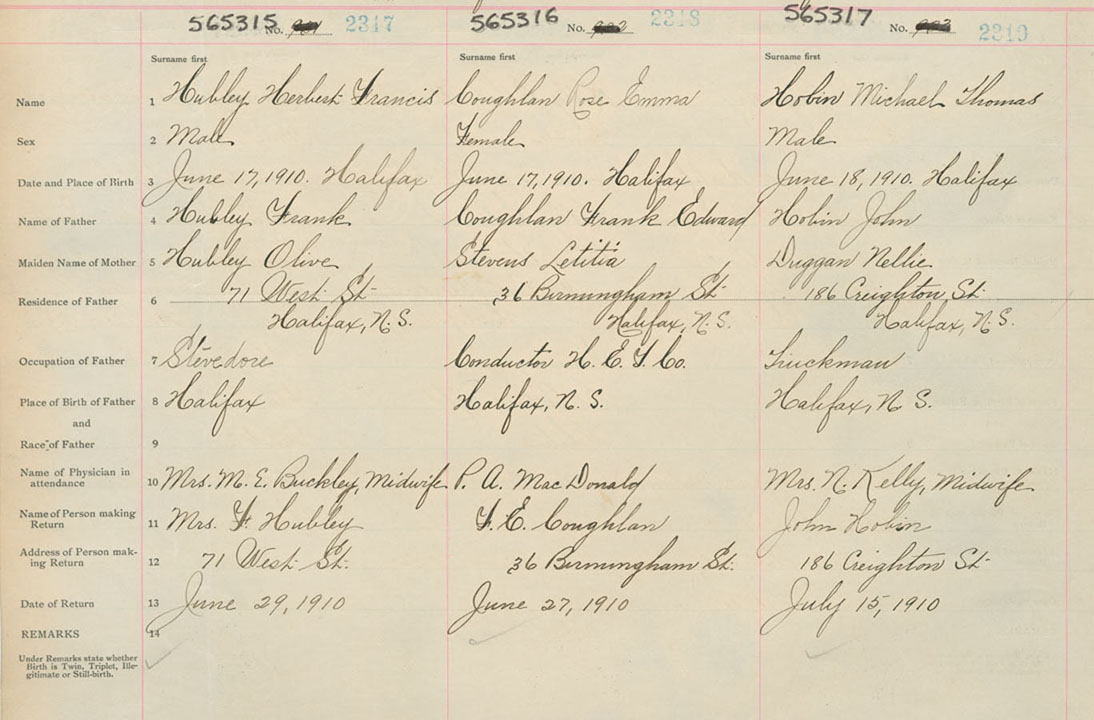 565315 No. 2317 565316 No. 2318 565317 No. 2319
Surname first Surname first Surname first
Name 1 Hubley Herbert Francis Coughlan Rose Emma Hobin Michael Thomas
Sex 2 Male Female Male
Date and Place of Birth 3 June 17, 1910. Halifax June 17, 1910. Halifax June 18, 1910. Halifax
Name of Father 4 Hubley Frank Coughlan Frank Edward Hobin John
Maiden Name of Mother 5 Hubley Olive Stevens Letitia Duggan Nellie
Residence of Father 6 71 West St. 36 Birmingham St. 186 Creighton St.
Halifax, N.S. Halifax, N.S. Halifax, N.S.
Occupation of Father 7 Stevedore Conductor H. E. T. Co. Truckman
Place of Birth of Father 8 Halifax Halifax, N. S. Halifax, N S.
and
Race of Father 9
Name of Physician in
attendance 10 Mrs. M. E. Buckley, Midwife P. A. MacDonald Mrs. N. Kelly, Midwife
Name of Person making
Return 11 Mrs. F. Hubley F. E. Coughlan John Hobin
Address of Person mak-
ing Return 12 71 West St. 36 Birmingham St. 186 Creighton St.
Date of Return 13 June 29, 1910 June 27, 1910 July 15, 1910
REMARKS 14
Under Remarks state whether
Birth is Twin, Triplet, Ille-
gitimate or Still-birth.